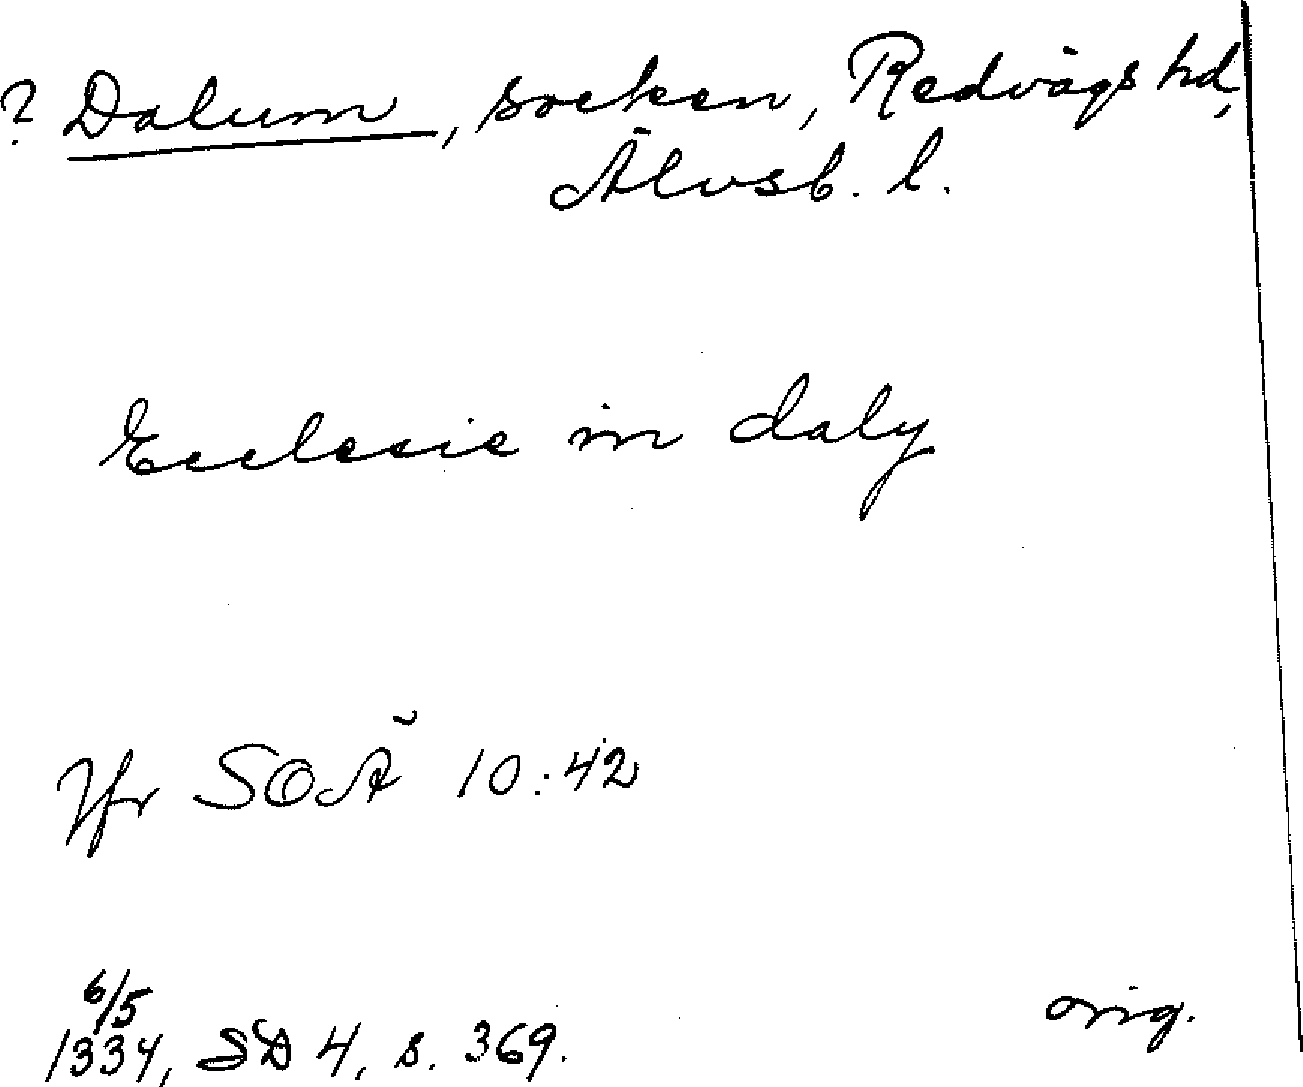 ? Dalum, socken, Redvägs hd,
Älvsb. l.
Ecclesie in daly
Jfr SOÄ 10:42
6/5
1334, SD 4, s. 369.
orig.